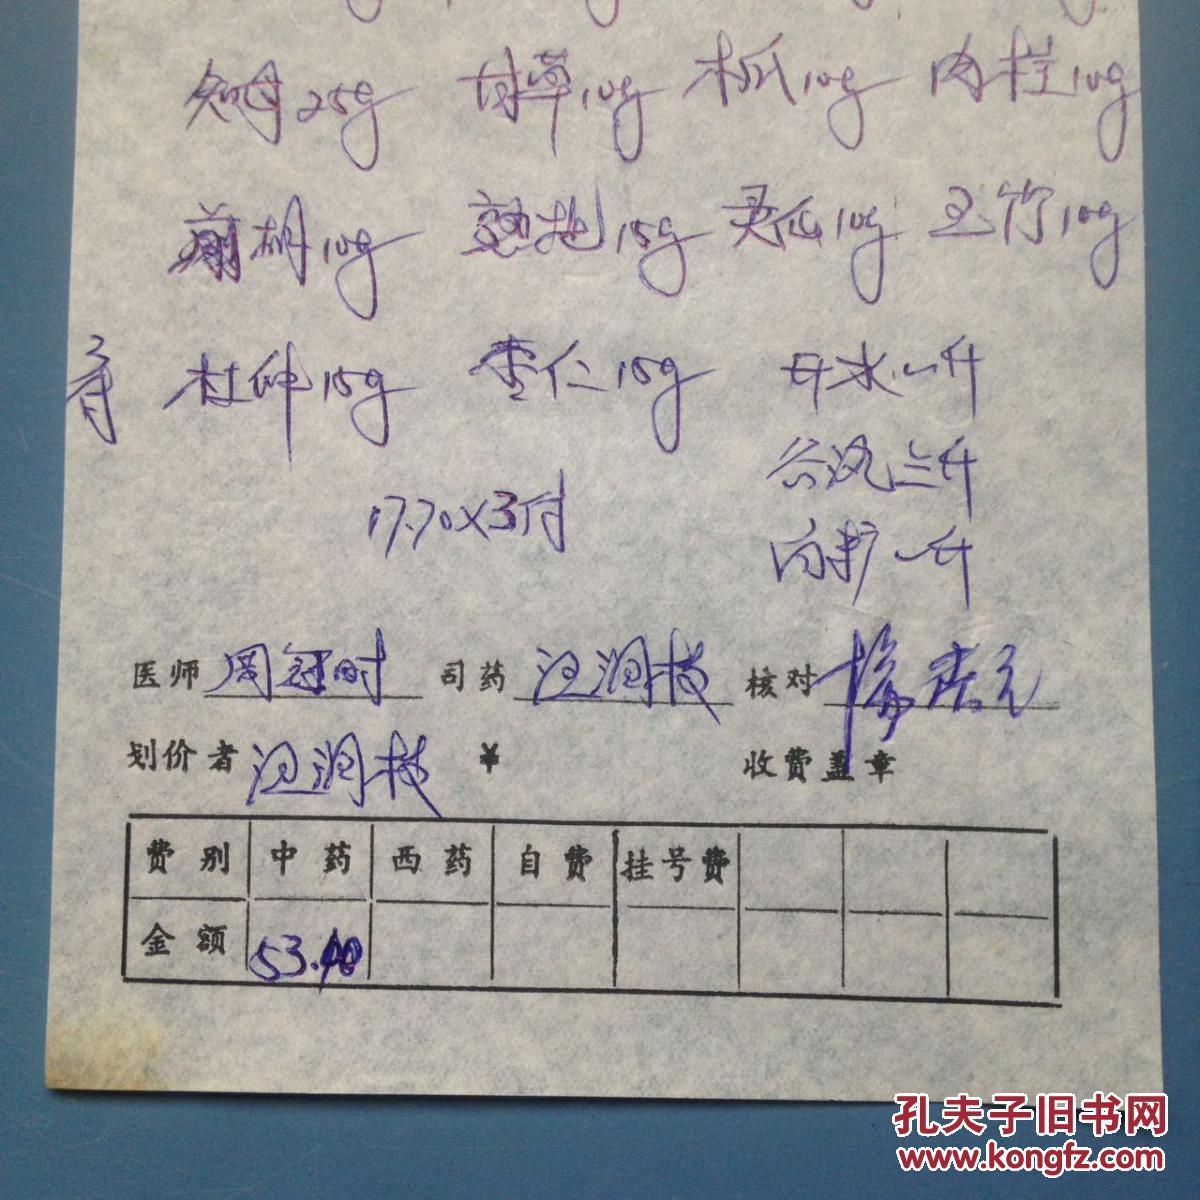 知母25g 甘草10g 木瓜10g 肉桂10g
前胡10g 熟地15g 灵仙10g 玉竹10g
杜仲15g 枣仁15g
17.70×3付
医师 周冠时 司药 汪润枝 核对
划价者 汪润枝 ¥ 收费盖章
费别 中药 西药 自费 挂号费
金额 53.40
孔夫子旧书网
www.kongfz.com